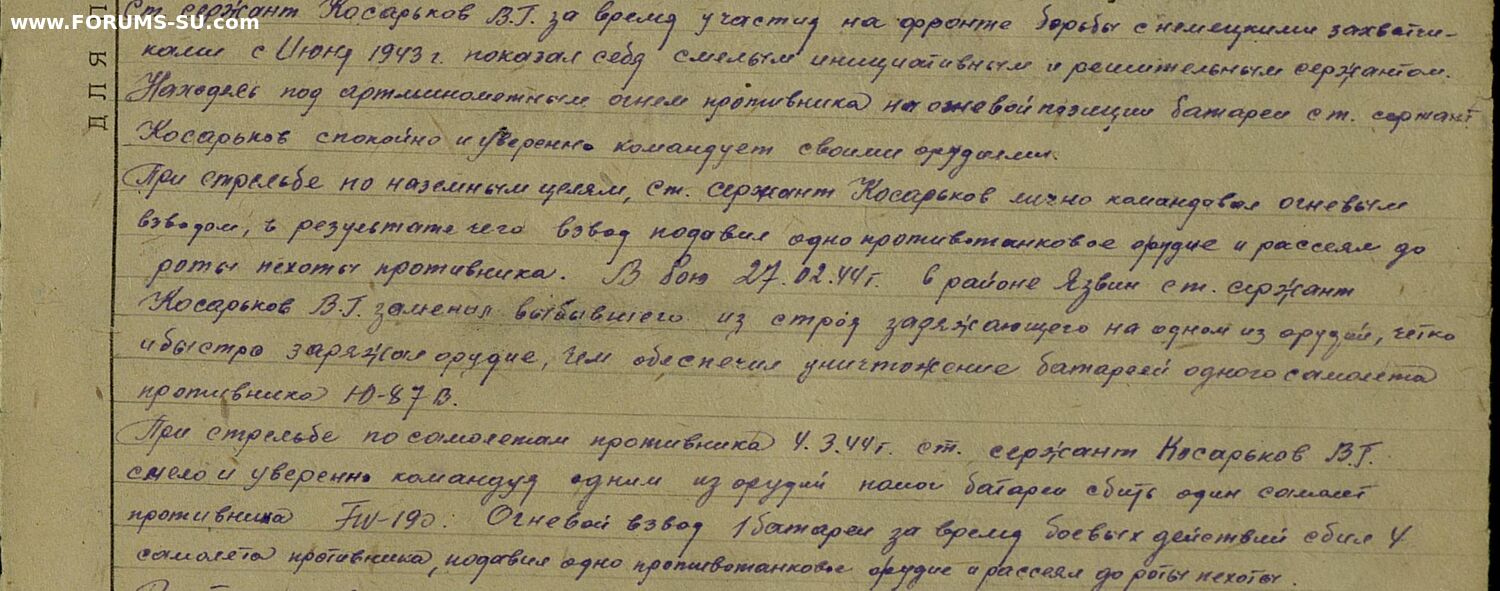 www.FORUMS-SU.com
ДЛЯ П
Ст. сержант Косарьков В.Г. за время участия на фронте борьбы с немецкими захватчи-
ками с Июня 1943 г. показал себя смелым инициативным и решительным сержантом.
Находясь под артминометным огнем противника на огневой позиции батареи ст. сержант
Косарьков спокойно и уверенно командует своими орудиями.
При стрельбе по наземным целям, ст. сержант Косарьков лично командовал огневым
взводом, в результате чего взвод подавил одно противотанковое орудие и рассеял до
роты пехоты противника. В бою 27.02.44 г. в районе Язвин ст. сержант
Косарьков В.Г. заменил выбывшего из строя заряжающего на одном из орудий, четко
и быстро заряжал орудие, чем обеспечил уничтожение батареей одного самолета
противника Ю-87 В.
При стрельбе по самолетам противника 4.3.44 г. ст. сержант Косарьков В.Г.
смело и уверенно командуя одним из орудий помог батареи сбить один самолет
противника FW-190. Огневой взвод 1 батареи за время боевых действий сбил 4
самолета противника, подавил одно противотанковое орудие и рассеял до роты пехоты.